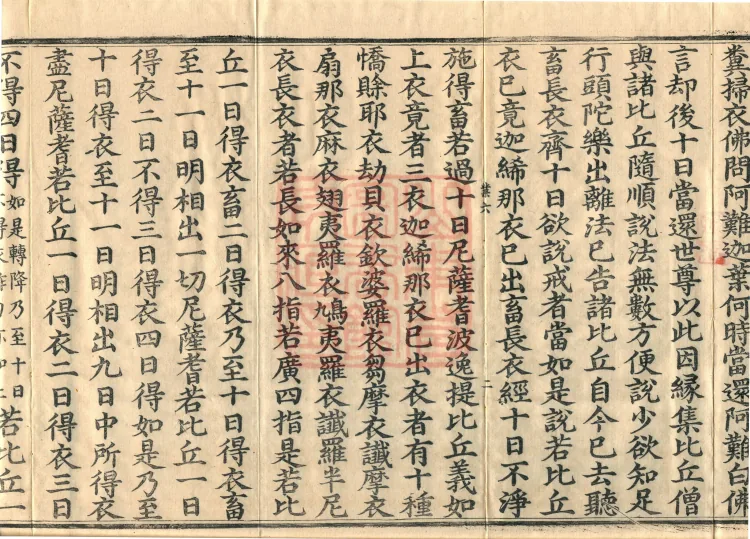 糞掃衣佛問阿難迦葉何時當還阿難白佛
言却後十日當還世尊以此因緣集比丘僧
與諸比丘隨順說法無數方便說少欲知足
行頭陀樂出離法已告諸比丘自今已去聽
畜長衣齊十日欲說戒者當如是說若比丘
衣已竟迦絺那衣已出畜長衣經十日不淨
施得畜若過十日尼薩耆波逸提比丘義如
上衣竟者三衣迦絺那衣已出衣者有十種
憍賒耶衣劫貝衣欽婆羅衣芻摩衣讖摩衣
扇那衣麻衣翅夷羅衣鳩夷羅衣讖羅半尼
衣長衣者若長如來八指若廣四指是若比
丘一日得衣畜二日得衣乃至十日得衣畜
至十一日明相出一切尼薩耆若比丘一日
得衣二日不得三日得衣四日得如是乃至
十日得衣至十一日明相出九日中所得衣
盡尼薩耆若比丘一日得衣二日得衣三日
不得四日得如是轉降乃至十日
若比丘一
二